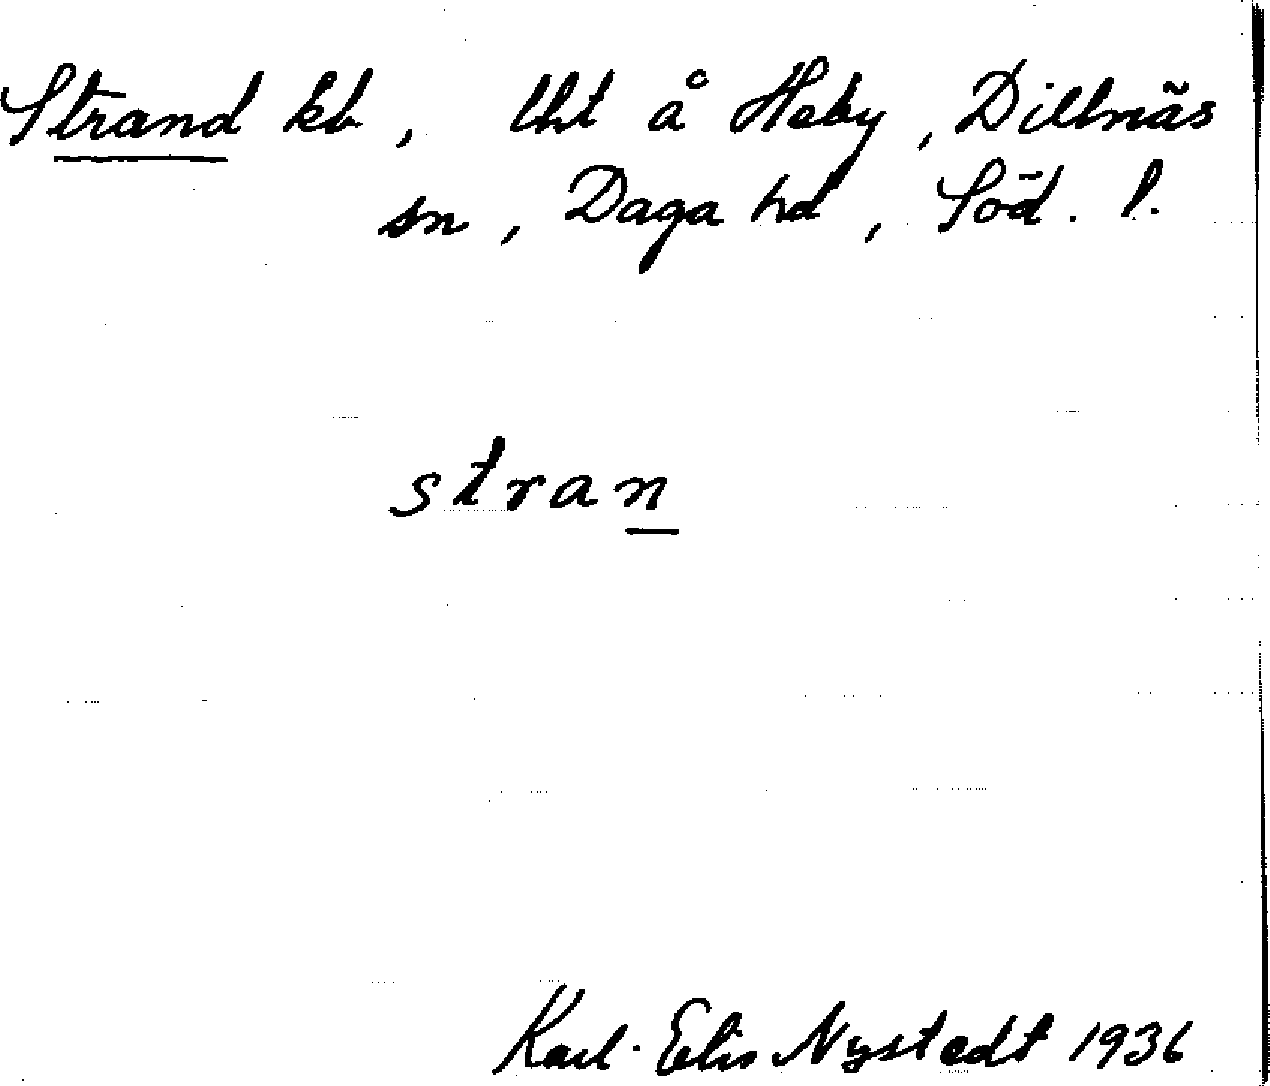 Strand lht, lht å Heby, Dillnäs
sn, Daga hd, Söd. l.
stran
Karl-Elis Nystedt 1936